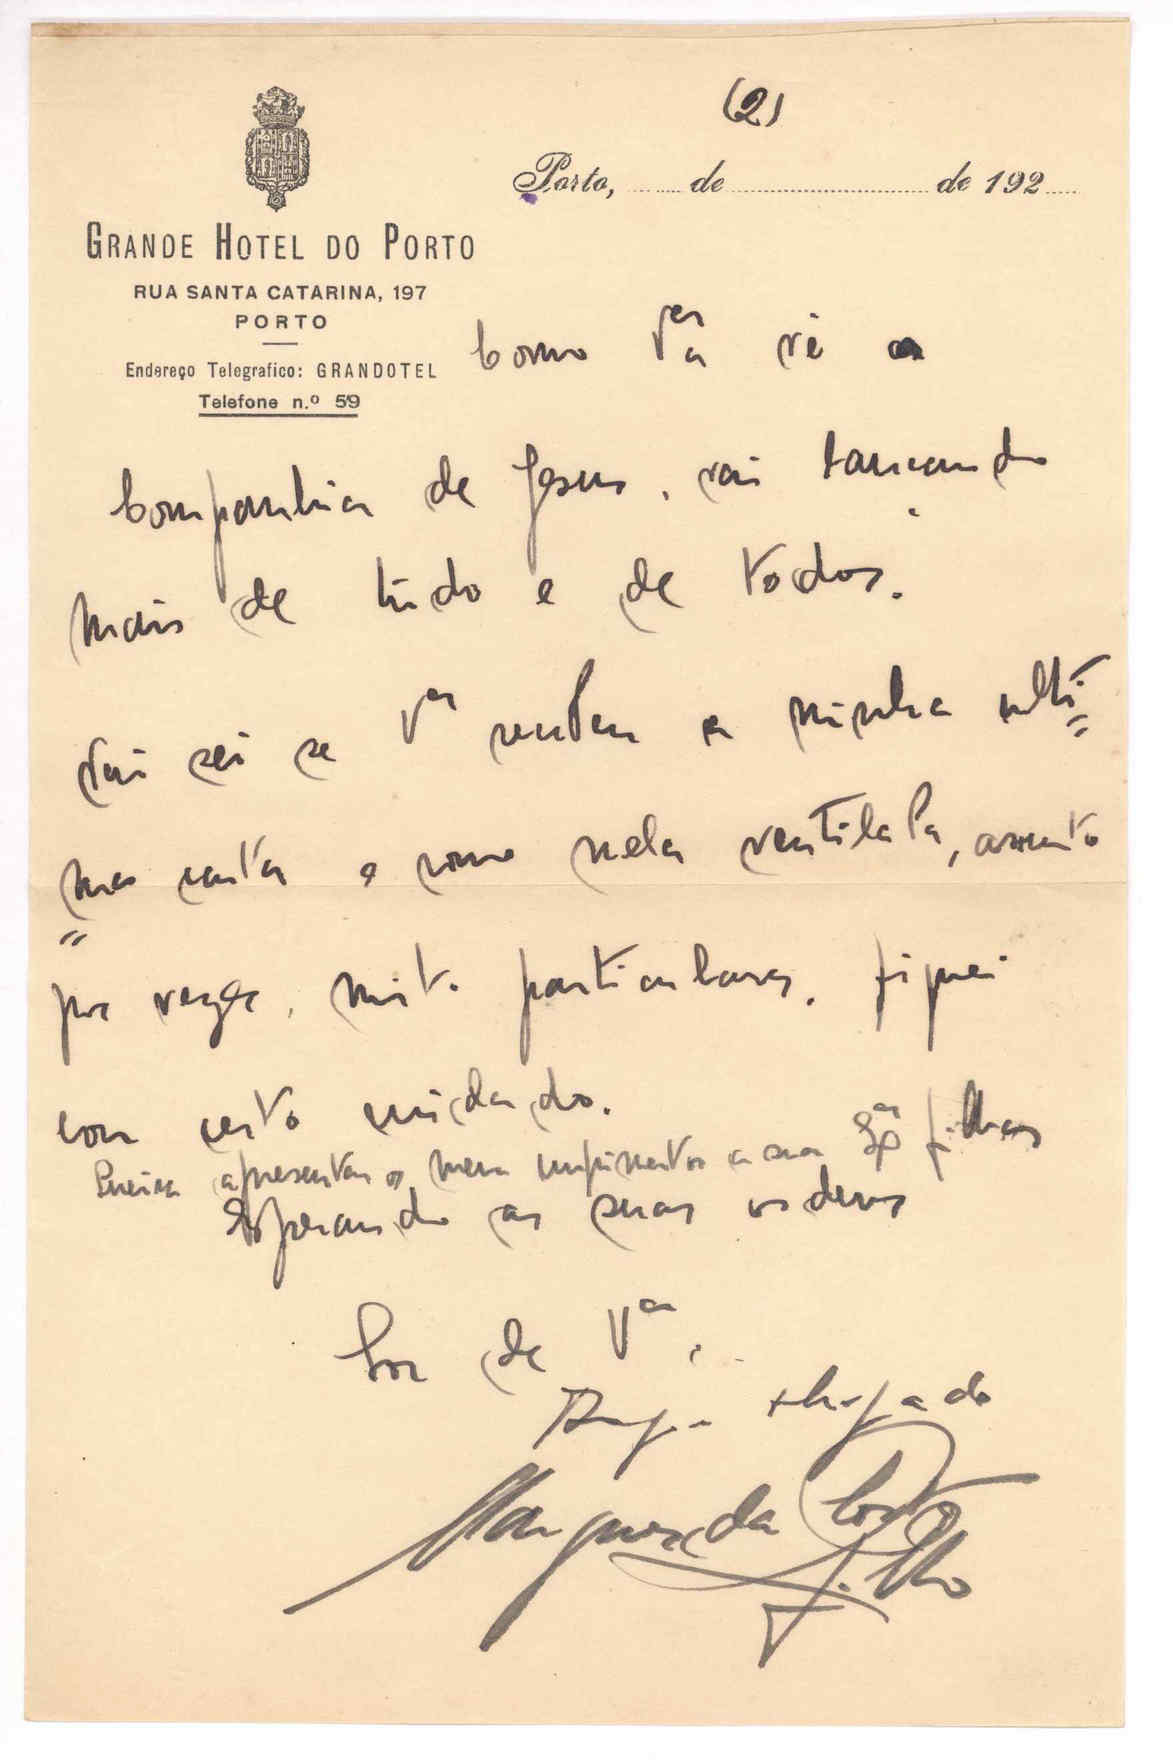 (2)
Porto, ...... de .......................... de 192.....
GRANDE HOTEL DO PORTO
RUA SANTA CATARINA, 197
PORTO
Endereço Telegrafico: GRANDOTEL
Telefone n.º 59
Como V.ª vê a
Companhia de Jesus, vai tomando
mais de tudo e de todos.
Não sei se V.ª recebeu a minha ulti=
=ma carta e como nela ventilava, assunto
por vezes, muito particulares, fiquei
com certo cuidado.
Queira apresentar os meus cumprimentos a sua Ex.ª filhas
Esperando as suas ordens
Sou de V.ª
Am.º obrigado
Marques da Costa
Filho